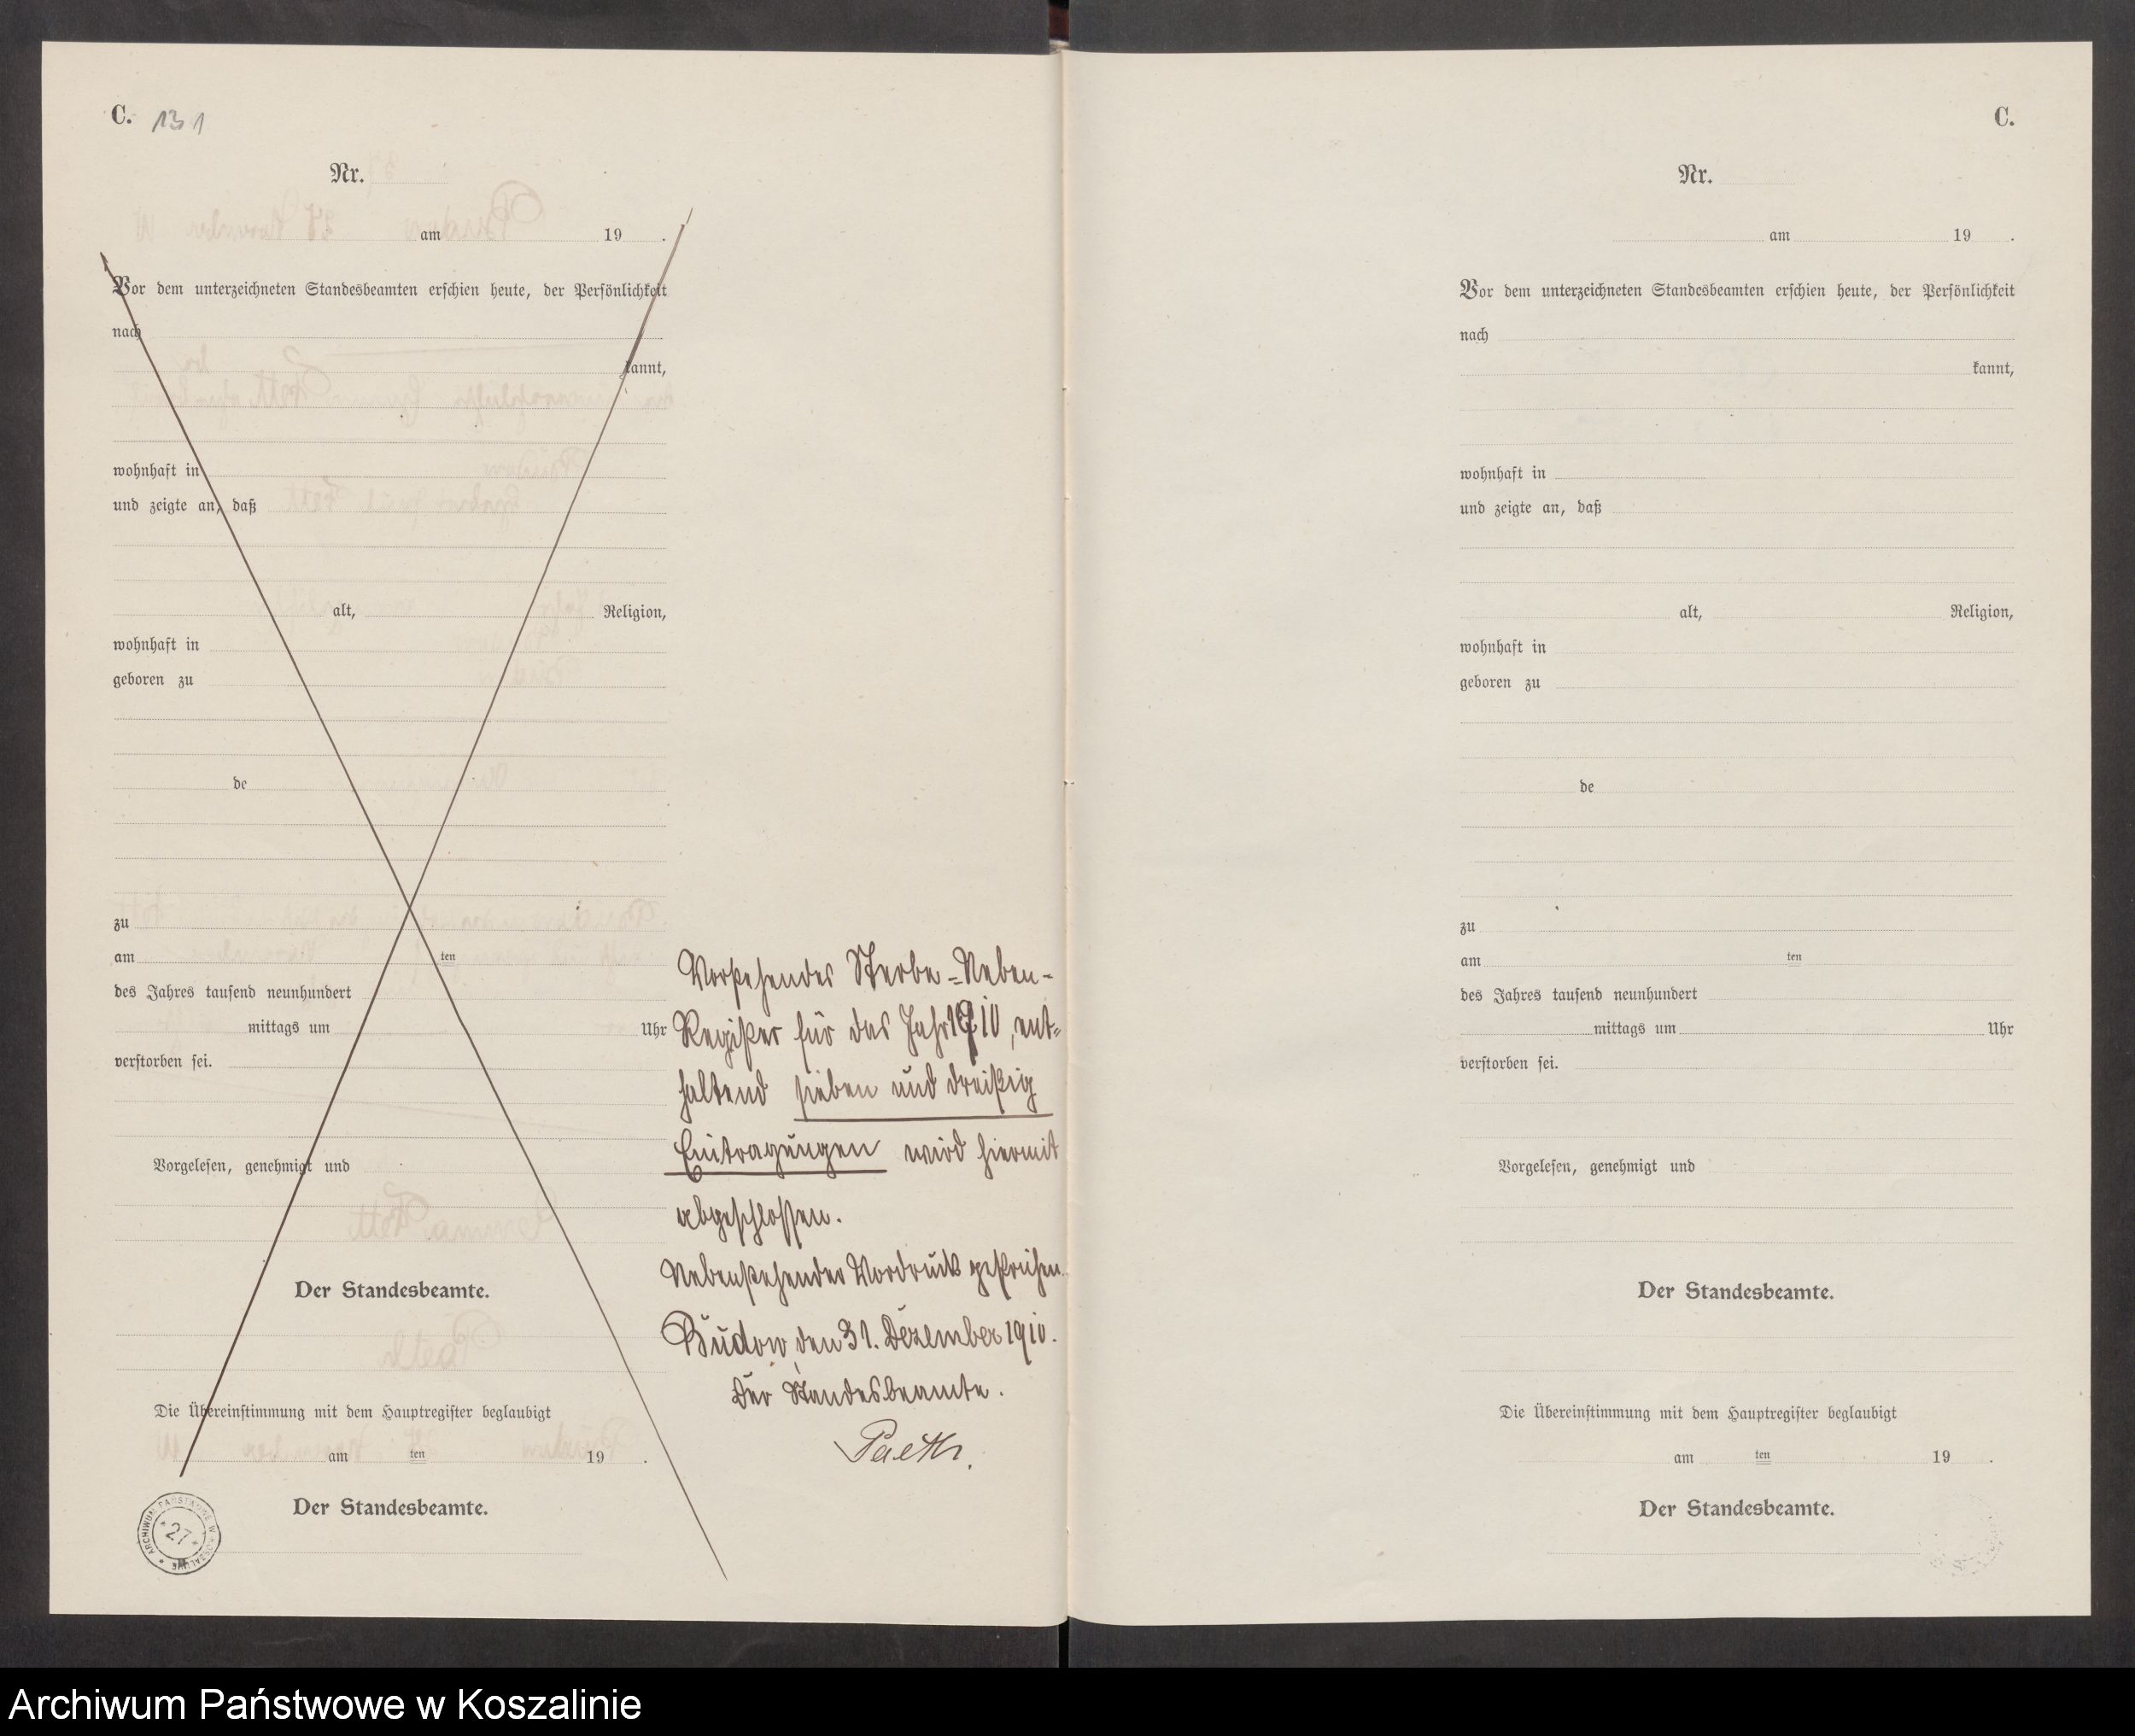 C. 131
Nr.
am 19 .
Vor dem unterzeichneten Standesbeamten erschien heute, der Persönlichkeit
nach
kannt,
wohnhaft in
und zeigte an, daß
alt, Religion,
wohnhaft in
geboren zu
de
zu
am ten
des Jahres tausend neunhundert
mittags um Uhr
verstorben sei.
Vorgelesen, genehmigt und
Der Standesbeamte.
Die Übereinstimmung mit dem Hauptregister beglaubigt
am ten 19 .
Der Standesbeamte.
ARCHIWUM PAŃSTWOWE W KOSZALINIE
* 27 *
Vorstehendes Sterbe-Neben-
Register für das Jahr 1910, ent-
haltend sieben und dreißig
Eintragungen wird hiermit
abgeschlossen.
Nebenstehender Vordruck gestrichen.
Budow, den 31. Dezember 1910.
Der Standesbeamte.
Paeth.
C.
Nr.
am 19 .
Vor dem unterzeichneten Standesbeamten erschien heute, der Persönlichkeit
nach
kannt,
wohnhaft in
und zeigte an, daß
alt, Religion,
wohnhaft in
geboren zu
de
zu
am ten
des Jahres tausend neunhundert
mittags um Uhr
verstorben sei.
Vorgelesen, genehmigt und
Der Standesbeamte.
Die Übereinstimmung mit dem Hauptregister beglaubigt
am ten 19 .
Der Standesbeamte.
Archiwum Państwowe w Koszalinie